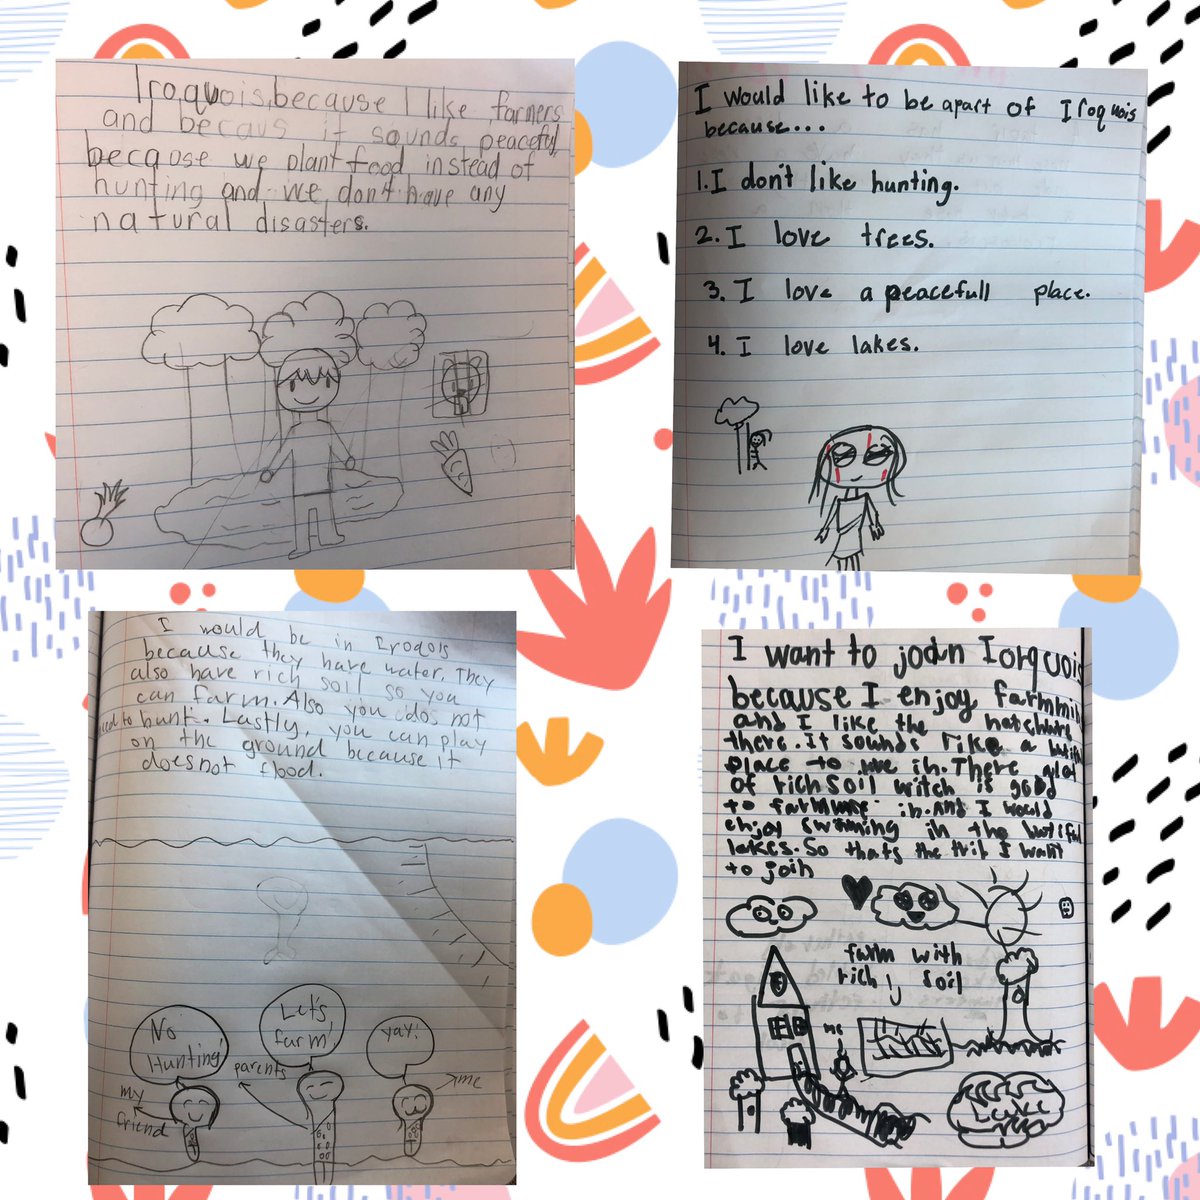 Iroquois, because I like farmers
and becaus it sounds peacefull
because we plant food instead of
hunting and we don't have any
natural disasters.
I would like to be apart of Iroquois
because...
1. I don't like hunting.
2. I love trees.
3. I love a peacefull place.
4. I love lakes.
I would be in Iroqois
because they have water. They
also have rich soil so you
can farm. Also you dos not
need to hunt. Lastly, you can play
on the ground because it
doesnot flood.
No
Hunting!
Let's
farm!
yay!
my
friend
parents
me
I want to join Iorquois
because I enjoy farmmin
and I like the
there. It sounds like a
place to live in. There
of rich soil witch is good
to in. And I would
enjoy swimming in the butiful
lakes. So thats the I want
to join
farm with
rich soil
me
Lake